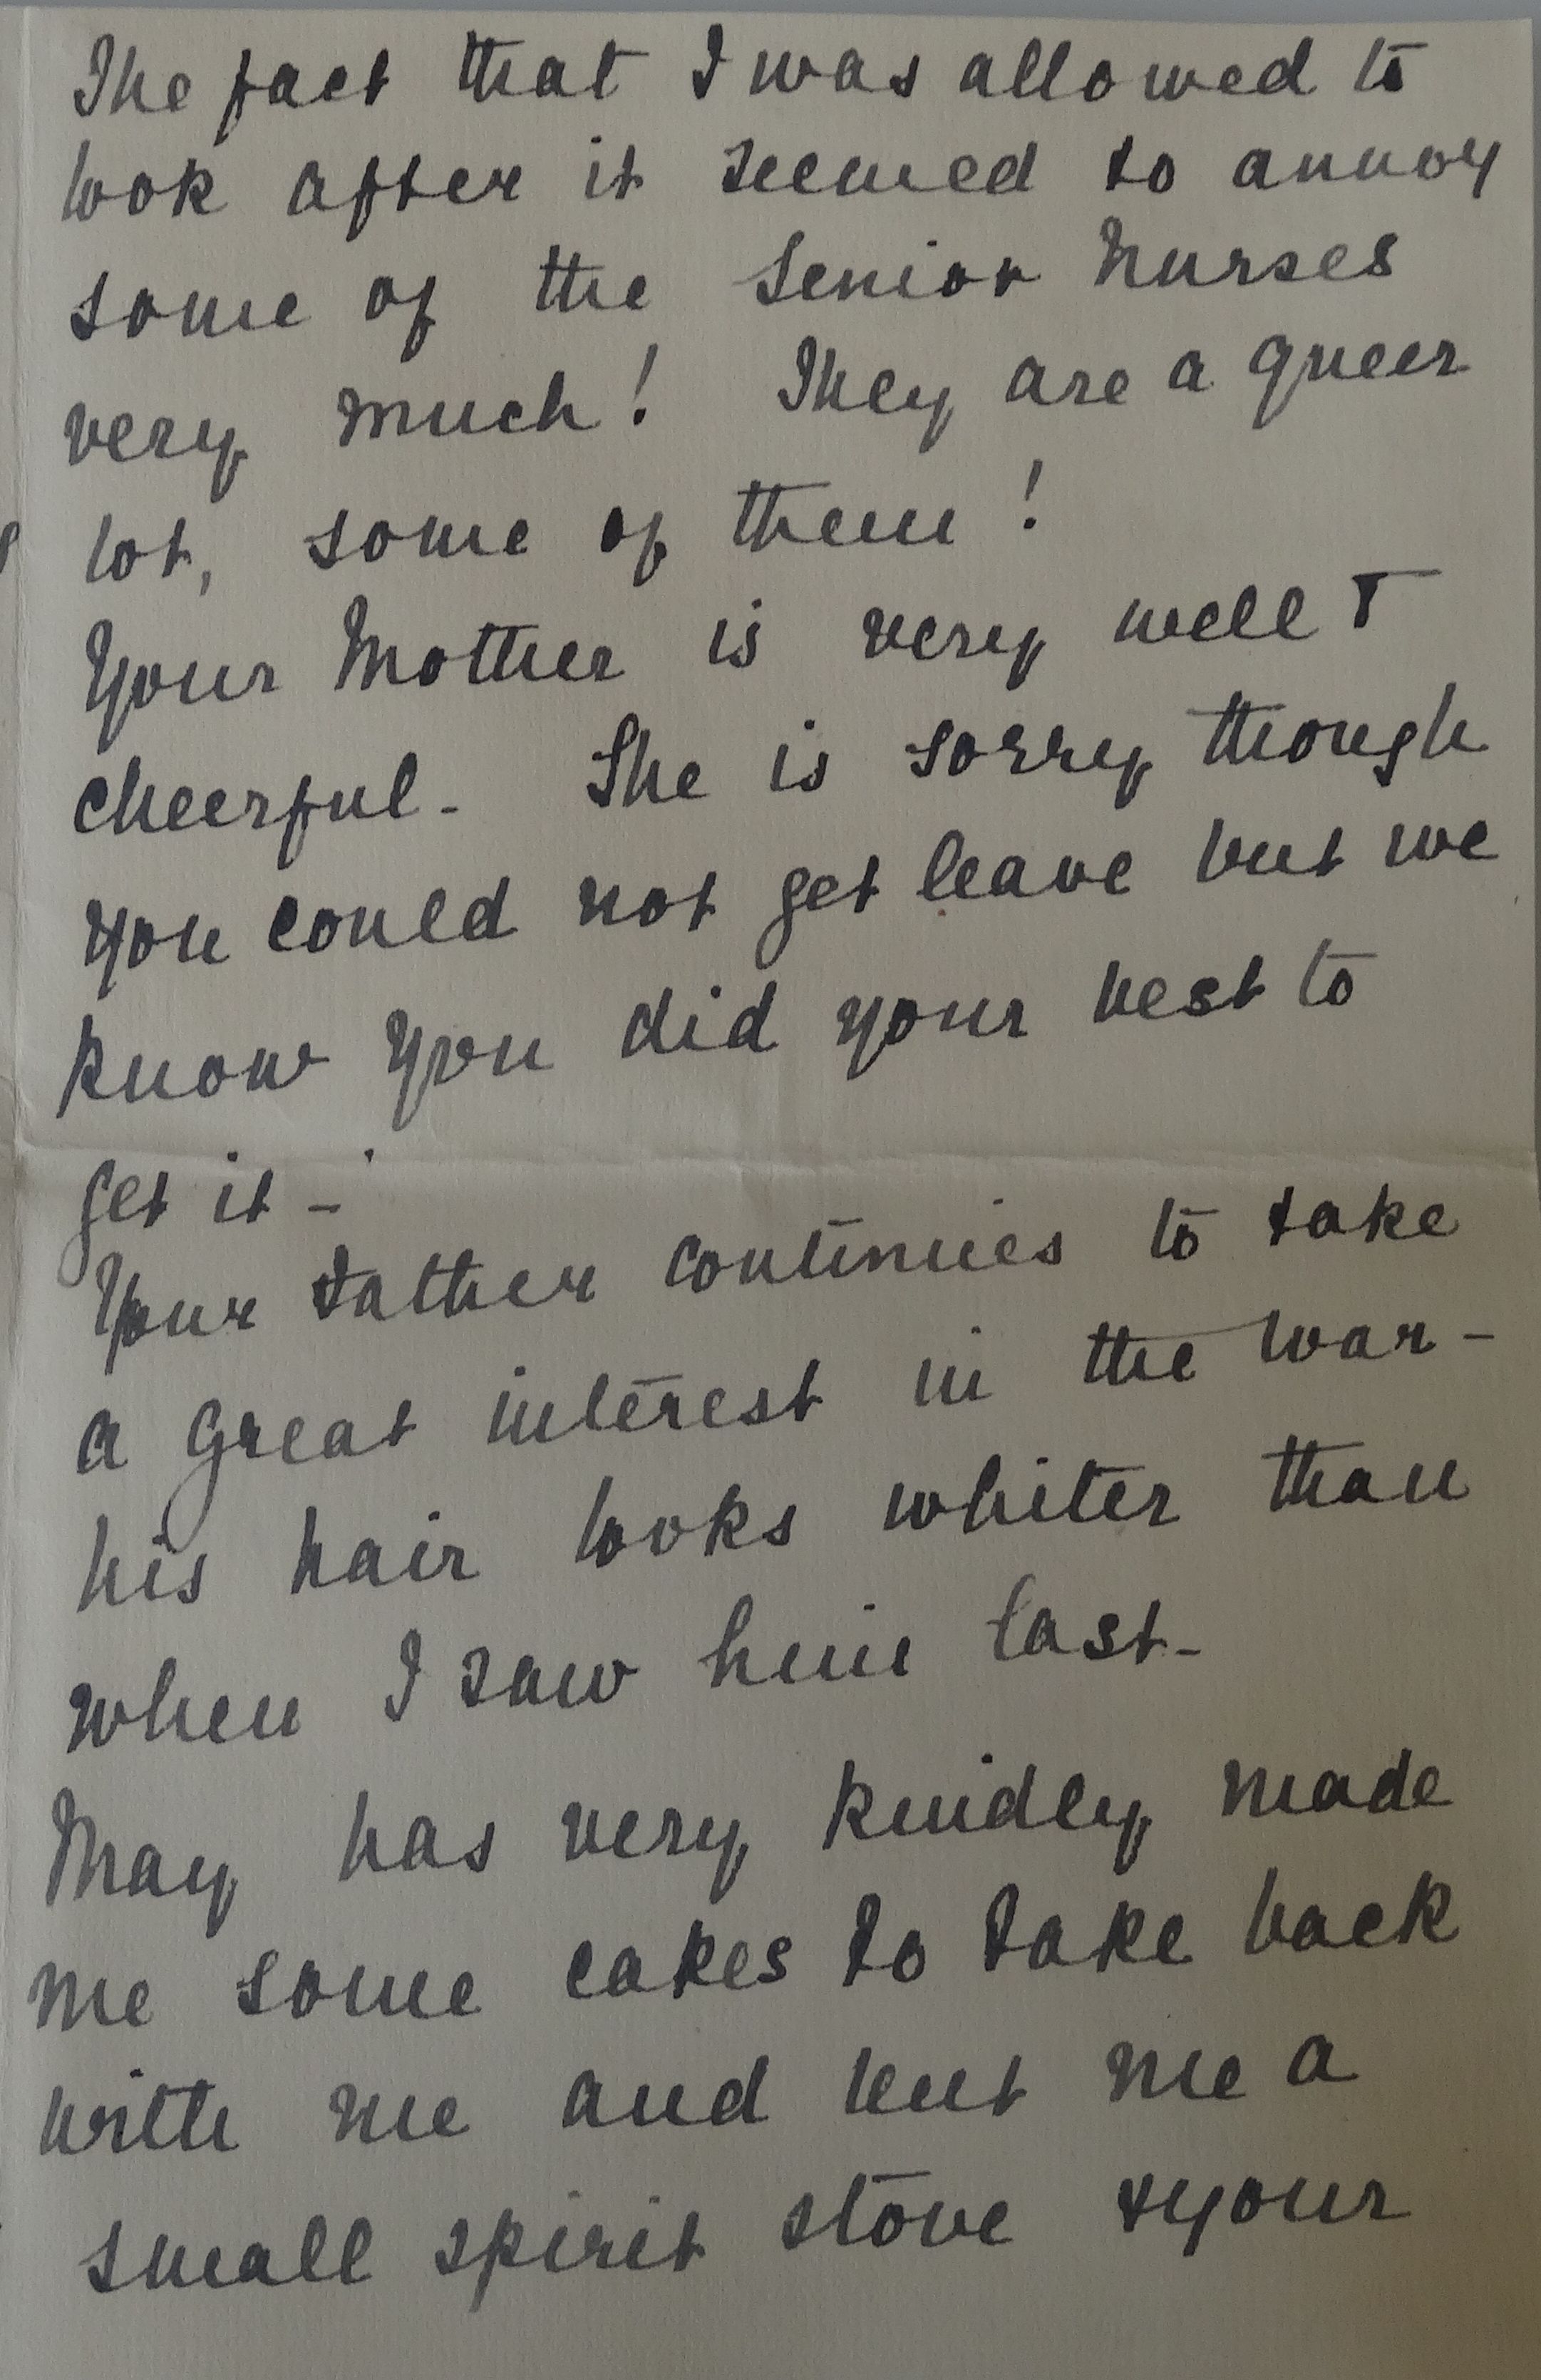 The fact that I was allowed to
look after it seemed to annoy
some of the Senior Nurses
very much! They are a queer
lot, some of them!
Your Mother is very well &
cheerful - She is sorry though
you could not get leave but we
know you did your best to
get it -
Your Father continues to take
a great interest in the war -
his hair looks whiter than
when I saw him last -
May has very kindly made
me some cakes to take back
with me and lent me a
small spirit stove & your